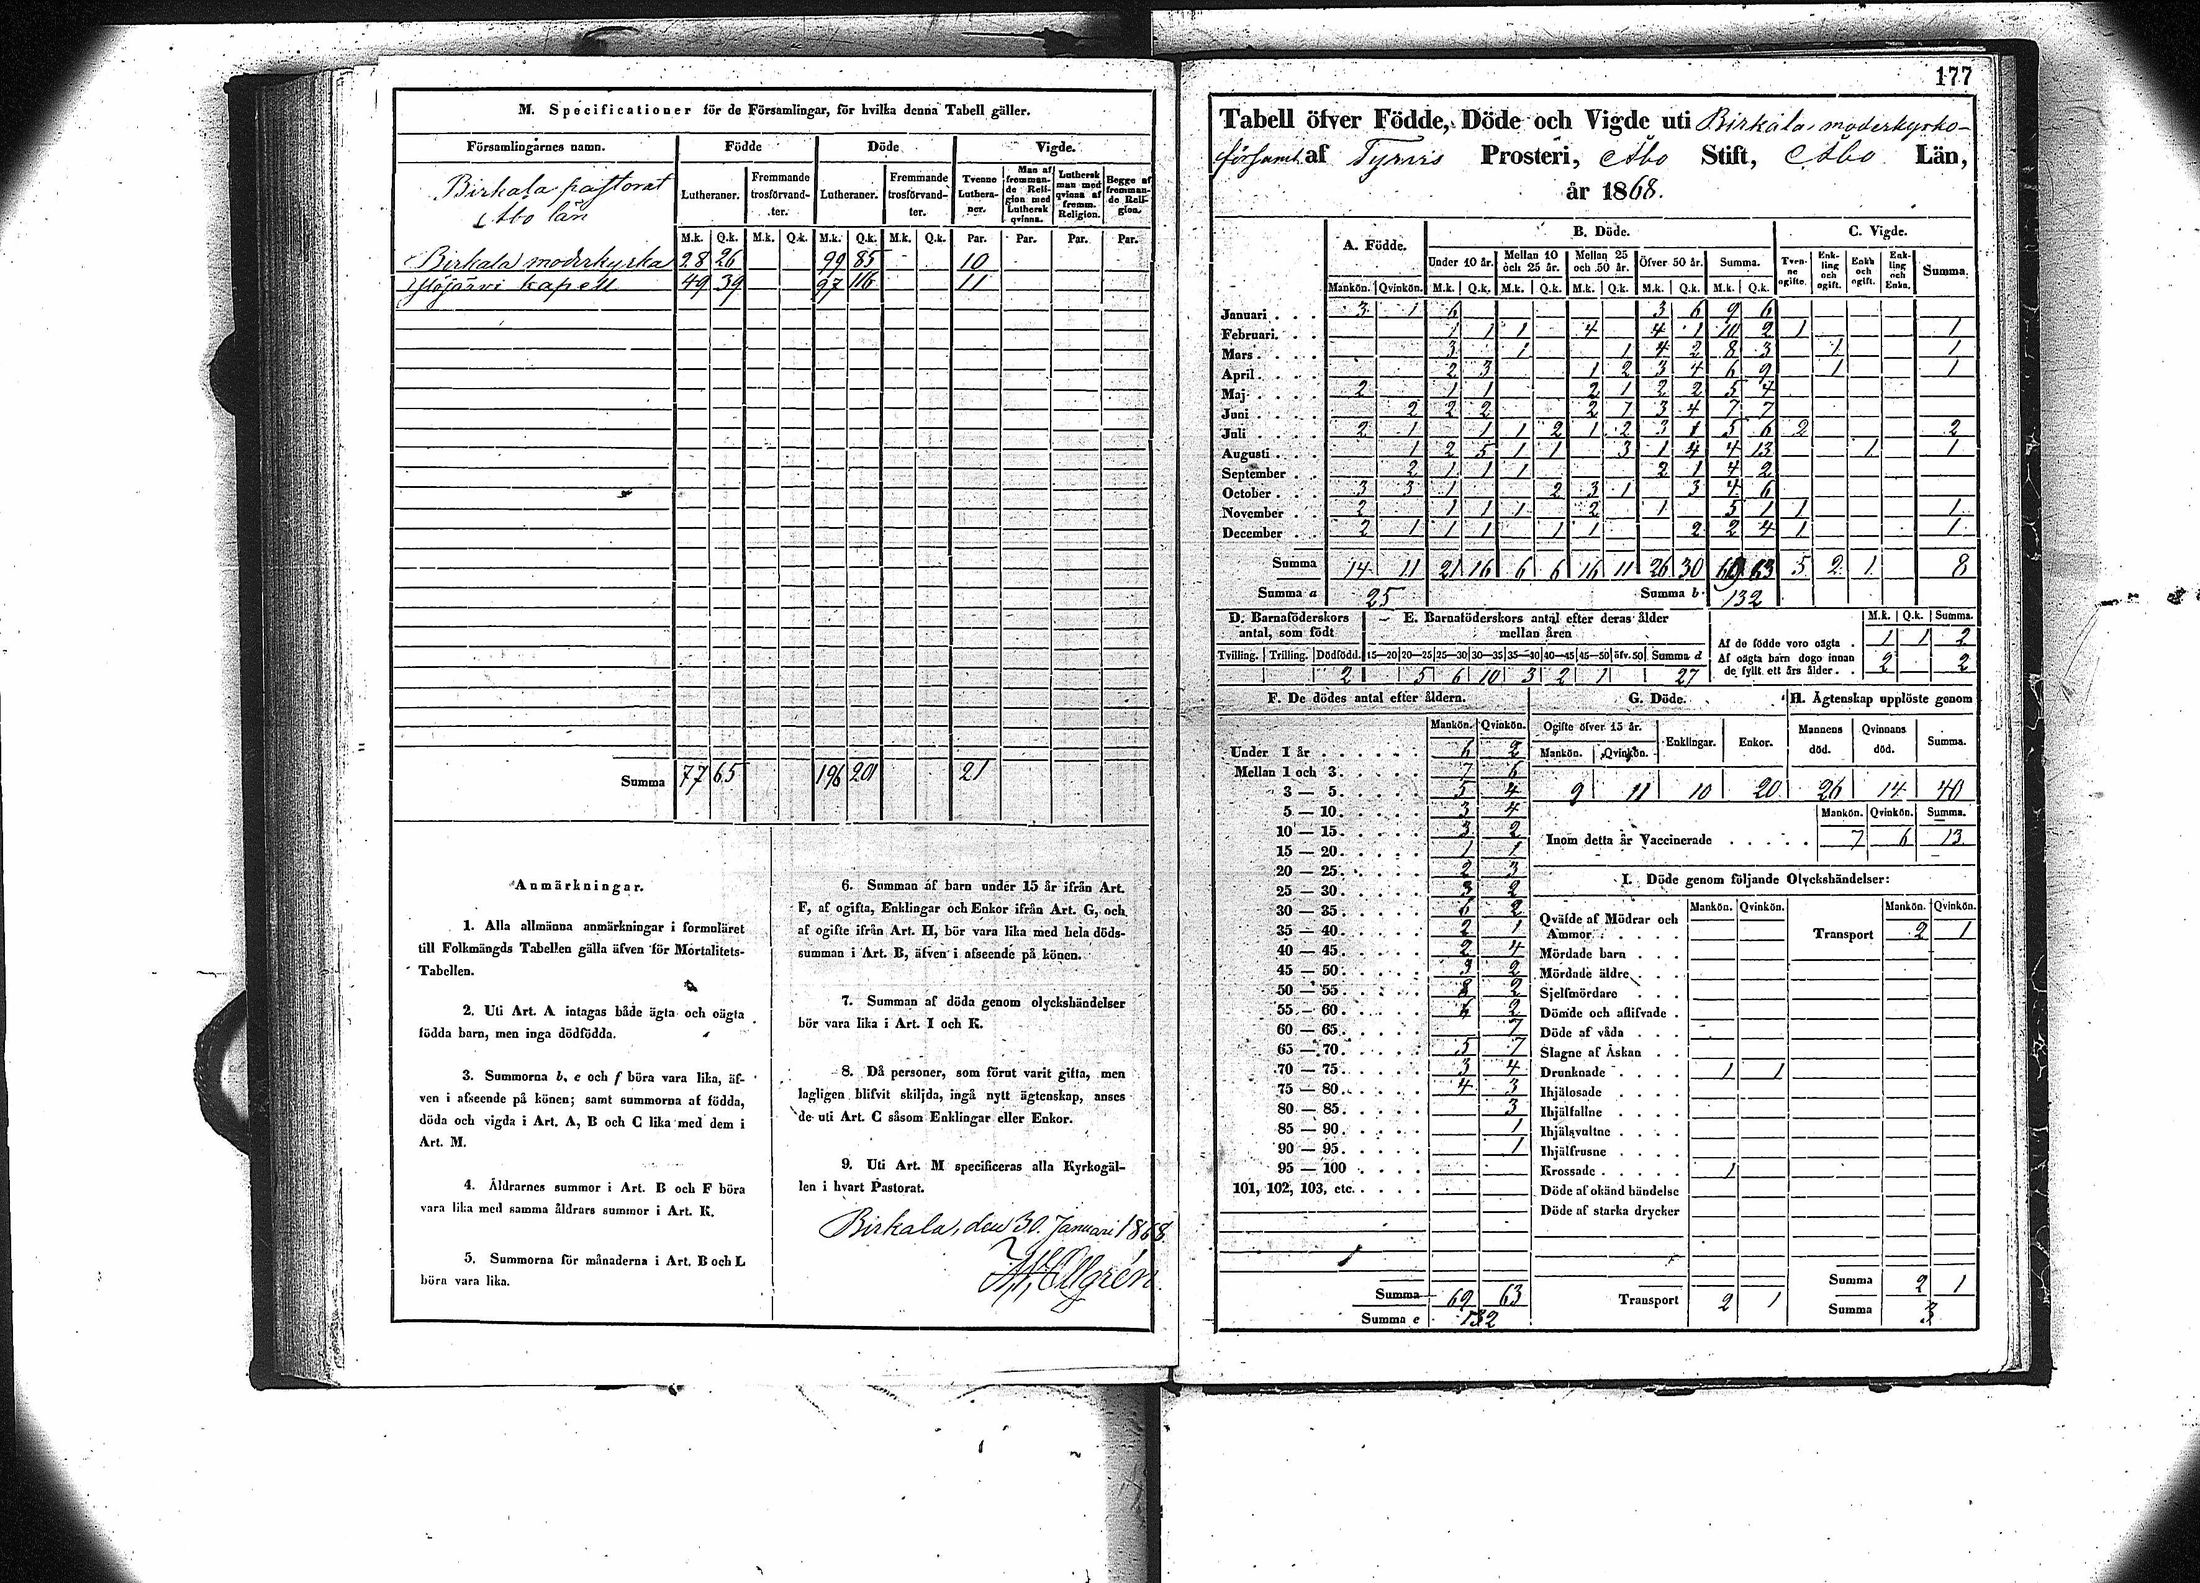 M. Specificationer för de Församlingar, för hvilka denna Tabell gäller.
Församlingarnes namn. Födde Döde Vigde.
Lutheraner. Fremmande trosförvandter. Lutheraner. Fremmande trosförvandter. Tvenne Lutheraner. Man af fremmande Religion med Luthersk qvinna. Luthersk man med qvinna af fremm. Religion. Begge af fremmande Religion.
Birkala pastorat
Åbo län
M.k. Q.k. M.k. Q.k. M.k. Q.k. M.k. Q.k. Par. Par. Par. Par.
Birkala moderkyrka 28 26 99 85 10
Ylöjärvi kapell 49 39 97 116 11
Summa 77 65 196 201 21
Anmärkningar.
1. Alla allmänna anmärkningar i formuläret
till Folkmängds Tabellen gälla äfven för Mortalitets-
Tabellen.
2. Uti Art. A intagas både ägta och oägta
födda barn, men inga dödfödda.
3. Summorna b, e och f böra vara lika, äf-
ven i afseende på könen; samt summorna af födda,
döda och vigda i Art. A, B och C lika med dem i
Art. M.
4. Åldrarnes summor i Art. B och F böra
vara lika med samma åldrars summor i Art. K.
5. Summorna för månaderna i Art. B och L
böra vara lika.
6. Summan af barn under 15 år ifrån Art.
F, af ogifta, Enklingar och Enkor ifrån Art. G, och
af ogifte ifrån Art. H, bör vara lika med hela döds-
summan i Art. B, äfven i afseende på könen.
7. Summan af döda genom olyckshändelser
bör vara lika i Art. I och K.
8. Då personer, som förut varit gifta, men
lagligen blifvit skiljda, ingå nytt ägtenskap, anses
de uti Art. C såsom Enklingar eller Enkor.
9. Uti Art. M specificeras alla Kyrkogäl-
len i hvart Pastorat.
Birkala, den 30. Januari 1868
177
Tabell öfver Födde, Döde och Vigde uti Birkala moderkyrko-
församl. af Tyrvis Prosteri, Åbo Stift, Åbo Län,
år 1868.
A. Födde. B. Döde. C. Vigde.
Under 10 år. Mellan 10 och 25 år. Mellan 25 och 50 år. Öfver 50 år. Summa. Tvenne ogifte. Enkling och ogift. Enka och ogift. Enkling och Enka. Summa.
Mankön. Qvinkön. M.k. Q.k. M.k. Q.k. M.k. Q.k. M.k. Q.k. M.k. Q.k.
Januari 3 1 6 3 6 9 6
Februari 1 1 1 4 4 1 10 2 1 1
Mars 3 1 1 4 2 8 3 1 1
April 2 3 1 2 3 4 6 9 1 1
Maj 2 1 1 2 1 2 2 5 4
Juni 2 2 2 2 1 3 4 7 7
Juli 2 1 1 1 2 1 2 3 1 5 6 2 2
Augusti 1 2 5 1 1 3 1 4 4 13 1 1
September 2 1 1 1 2 1 4 2
October 3 3 1 2 3 1 3 4 6
November 2 1 1 1 2 1 5 1 1 1
December 2 1 1 1 1 1 2 2 4 1 1
Summa 14 11 21 16 6 6 16 11 26 30 69 63 5 2 1 8
Summa a 25 Summa b 132
D. Barnaföderskors antal, som födt
Tvilling. Trilling. Dödfödd.
2
E. Barnaföderskors antal efter deras ålder mellan åren
15—20 20—25 25—30 30—35 35—40 40—45 45—50 öfv. 50 Summa d
5 6 10 3 2 1 27
M.k. Q.k. Summa.
Af de födde voro oägta 1 1 2
Af oägta barn dogo innan de fyllt ett års ålder 2 2
F. De dödes antal efter åldern.
Mankön. Qvinkön.
Under 1 år 6 2
Mellan 1 och 3 7 6
3 — 5 5 4
5 — 10 3 4
10 — 15 3 2
15 — 20 1 1
20 — 25 2 3
25 — 30 3 2
30 — 35 6 2
35 — 40 2 1
40 — 45 2 4
45 — 50 3 2
50 — 55 8 2
55 — 60 6 2
60 — 65 7
65 — 70 5 7
70 — 75 3 4
75 — 80 4 3
80 — 85 3
85 — 90 1
90 — 95 1
95 — 100
101, 102, 103, etc.
Summa 69 63
Summa e 132
G. Döde.
Ogifte öfver 15 år. Enklingar. Enkor.
Mankön. Qvinkön.
9 11 10 20
H. Ägtenskap upplöste genom
Mannens död. Qvinnans död. Summa.
26 14 40
Mankön. Qvinkön. Summa.
Inom detta år Vaccinerade 7 6 13
I. Döde genom följande Olyckshändelser:
Mankön. Qvinkön. Mankön. Qvinkön.
Qväfde af Mödrar och Ammor
Transport 2 1
Mördade barn
Mördade äldre
Sjelfmördare
Dömde och aflifvade
Döde af våda
Slagne af Åskan
Drunknade 1 1
Ihjälosade
Ihjälfallne
Ihjälsvultne
Ihjälfrusne
Krossade 1
Döde af okänd händelse
Döde af starka drycker
Transport 2 1
Summa 2 1
Summa 3